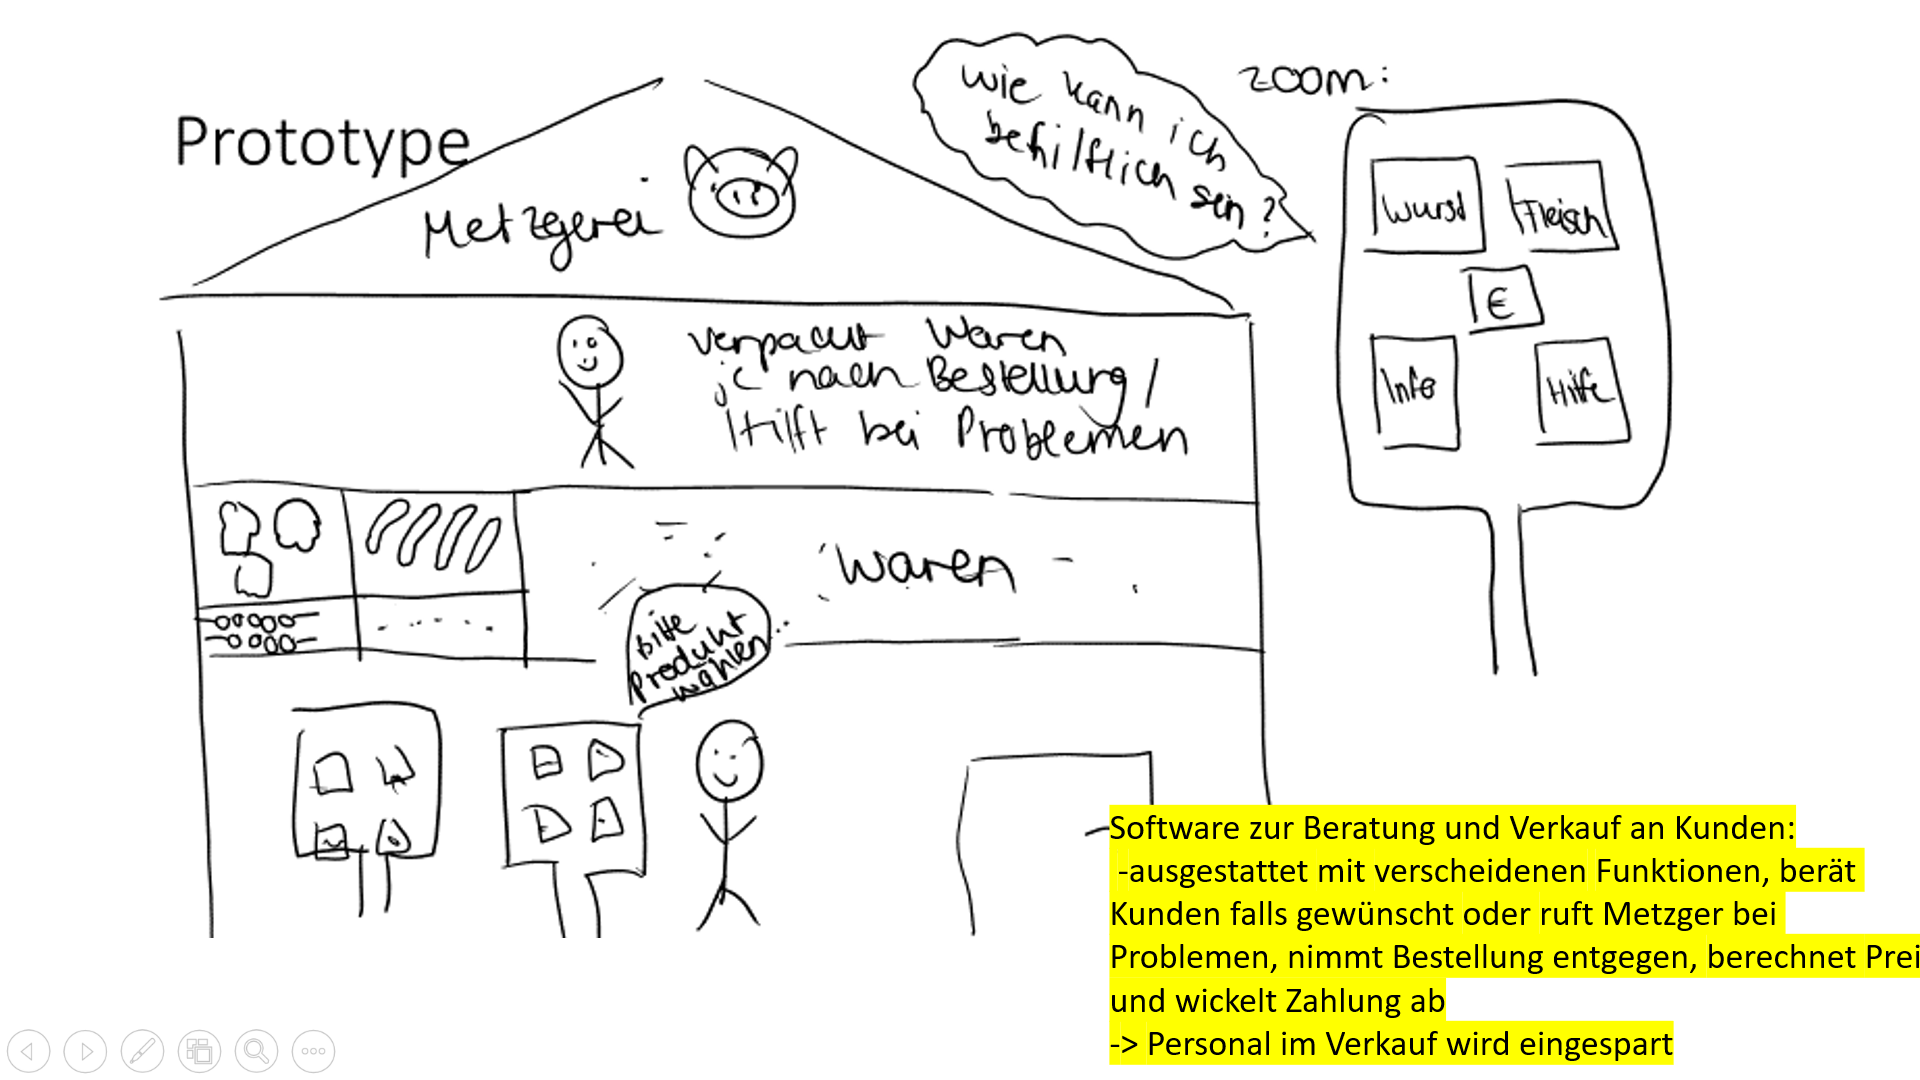 Prototype
Metzgerei
wie kann ich
behilflich
sein?
zoom:
Wurst
Fleisch
€
Info
Hilfe
verpackt Waren
je nach Bestellung/
Hilft bei Problemen
Waren
Bitte
Produkt
wählen
Software zur Beratung und Verkauf an Kunden:
-ausgestattet mit verscheidenen Funktionen, berät
Kunden falls gewünscht oder ruft Metzger bei
Problemen, nimmt Bestellung entgegen, berechnet Prei
und wickelt Zahlung ab
-> Personal im Verkauf wird eingespart